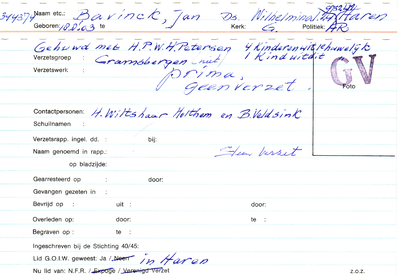 344374 Naam etc.: Bavinck, Jan Ds. Wilhelmina Haren
Geboren: te Kerk: G. Politiek: AR
Gehuwd met H.P.W.H. Petersen 4 Kinderen uit 1e huwelijk
Verzetsgroep : Gramsbergen 1 Kind uit dit
Verzetswerk : prima,
geen verzet.
GV
Foto
Contactpersonen: H. Wiltshaar Holthem en B. Veldsink
Schuilnaam :
Verzetsrapp. ingel. dd. : bij:
Naam genoemd in rapp.: Geen verzet
op bladzijde:
Gearresteerd op : door:
Gevangen gezeten in :
Bevrijd op : uit : door:
Overleden op: door: te :
Begraven op : te :
Ingeschreven bij de Stichting 40/45:
Lid G.O.I.W. geweest: Ja / Neen in Haren
Nu lid van: N.F.R. / Expogé / Verenigd Verzet z.o.z.